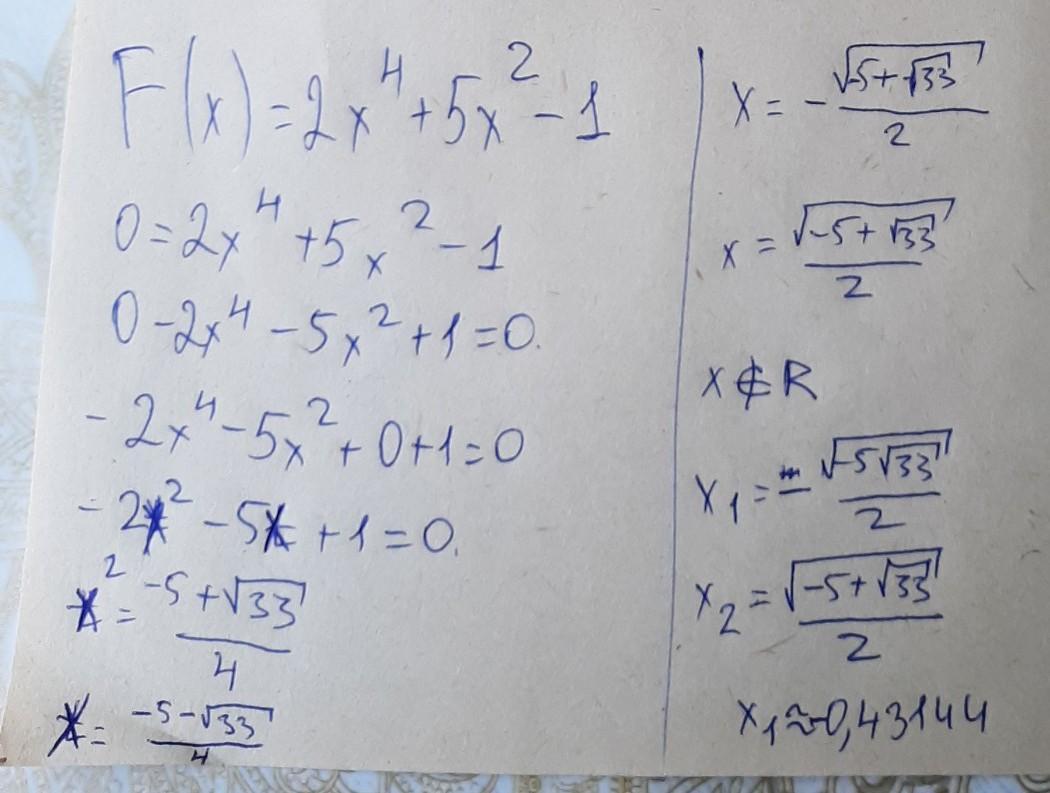 F(x)=2x⁴+5x²-1
0=2x⁴+5x²-1
0-2x⁴-5x²+1=0.
-2x⁴-5x²+0+1=0
-2x²-5x+1=0.
x²=(-5+√33)/4
x=(-5-√33)/4
x=-√(-5+√33)/2
x=√(-5+√33)/2
x∉R
x₁=-√(-5√33)/2
x₂=√(-5+√33)/2
x₁≈-0,43144